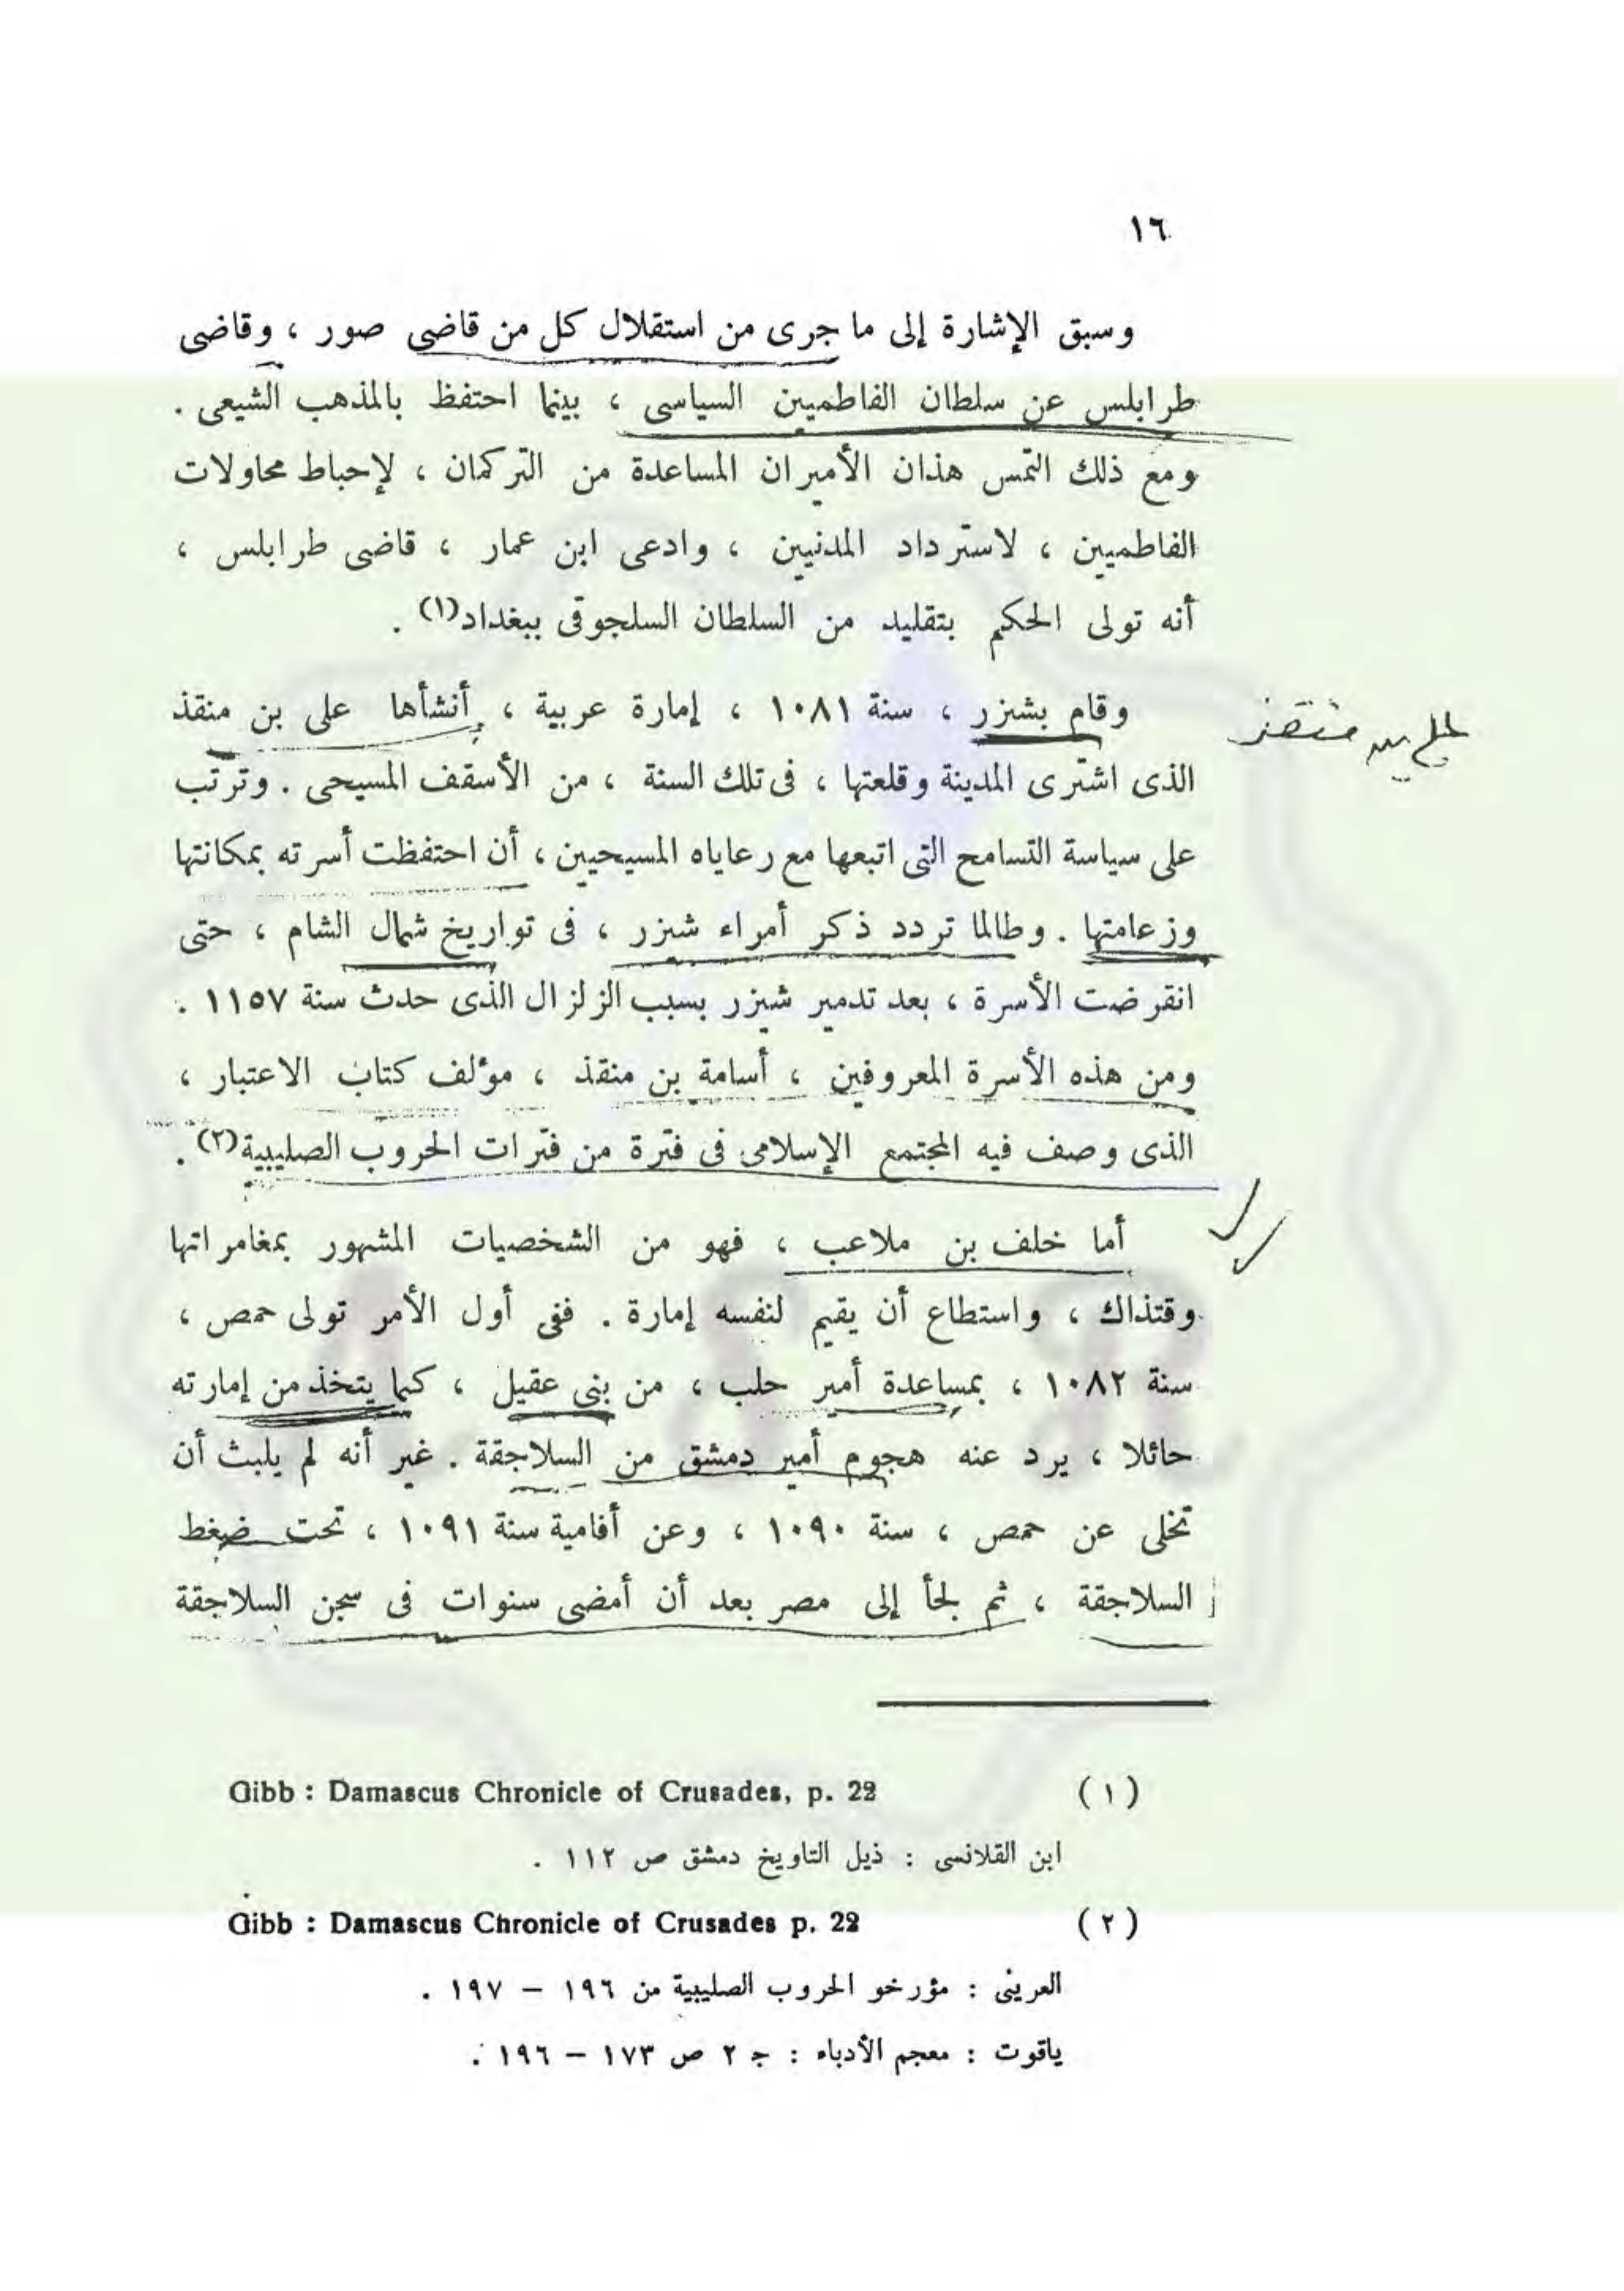 ١٦
وسبق الإشارة إلى ما جرى من استقلال كل من قاضى صور ، وقاضى
طرابلس عن سلطان الفاطميين السياسى ، بينما احتفظ بالمذهب الشيعى .
ومع ذلك التمس هذان الأميران المساعدة من التركمان ، لإحباط محاولات
الفاطميين ، لاسترداد المدنيين ، وادعى ابن عمار ، قاضى طرابلس ،
أنه تولى الحكم بتقليد من السلطان السلجوقى ببغداد(١) .
وقام بشيزر ، سنة ١٠٨١ ، إمارة عربية ، أنشأها على بن منقذ
على بن منقذ
الذى اشترى المدينة وقلعتها ، فى تلك السنة ، من الأسقف المسيحى . وترتب
على سياسة التسامح التى اتبعها مع رعاياه المسيحيين ، أن احتفظت أسرته بمكانتها
وزعامتها . وطالما تردد ذكر أمراء شيزر ، فى تواريخ شمال الشام ، حتى
انقرضت الأسرة ، بعد تدمير شيزر بسبب الزلزال الذى حدث سنة ١١٥٧ .
ومن هذه الأسرة المعروفين ، أسامة بن منقذ ، مؤلف كتاب الاعتبار ،
الذى وصف فيه المجتمع الإسلامى فى فترة من فترات الحروب الصليبية(٢) .
أما خلف بن ملاعب ، فهو من الشخصيات المشهور بمغامراتها
وقتذاك ، واستطاع أن يقيم لنفسه إمارة . ففى أول الأمر تولى حمص ،
سنة ١٠٨٢ ، بمساعدة أمير حلب ، من بنى عقيل ، كيما يتخذ من إمارته
حائلا ، يرد عنه هجوم أمير دمشق من السلاجقة . غير أنه لم يلبث أن
تخلى عن حمص ، سنة ١٠٩٠ ، وعن أفامية سنة ١٠٩١ ، تحت ضغط
السلاجقة ، ثم لجأ إلى مصر بعد أن أمضى سنوات فى سجن السلاجقة
(١) Gibb : Damascus Chronicle of Crusades, p. 22
ابن القلانسى : ذيل التاويخ دمشق ص ١١٢ .
(٢) Gibb : Damascus Chronicle of Crusades p. 22
العرينى : مؤرخو الحروب الصليبية من ١٩٦ – ١٩٧ .
ياقوت : معجم الأدباء : ج ٢ ص ١٧٣ – ١٩٦ .